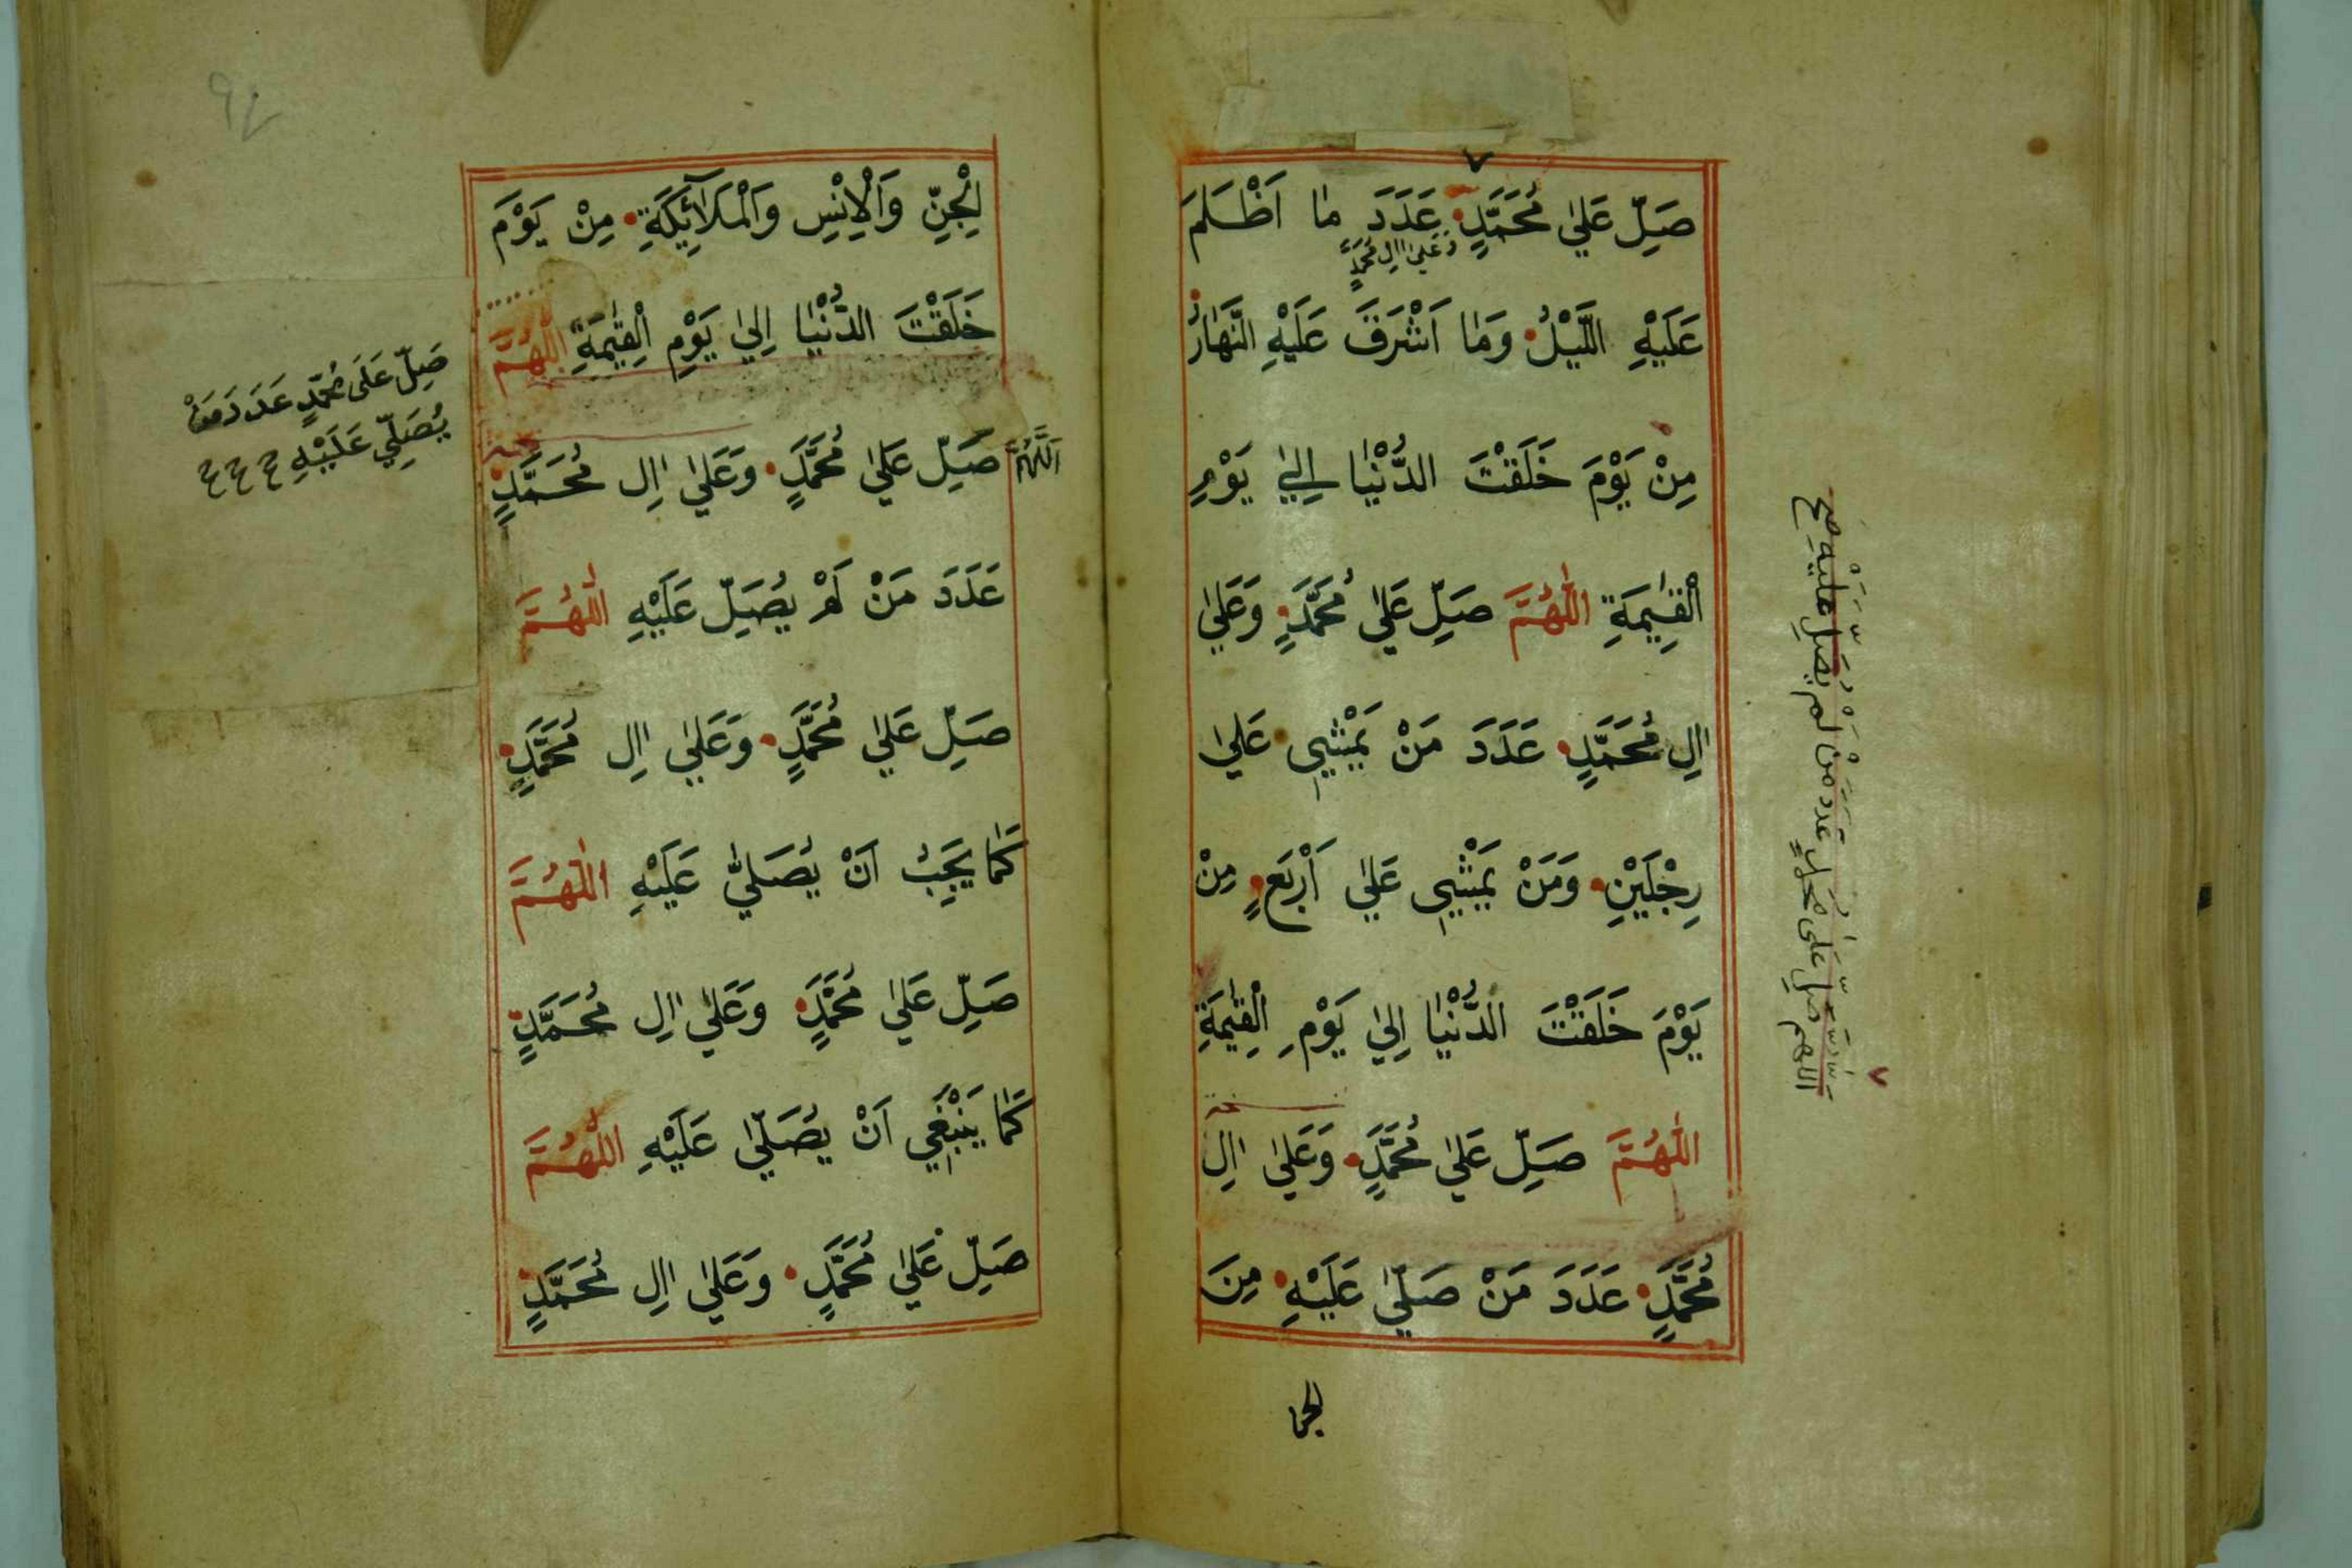 صَلِّ عَلٰي مُحَمَّدٍ عَدَدَ مٰا اَظْلَمَ
وَعَلٰي اٰلِ مُحَمَّدٍ
عَلَيْهِ اللَّيْلُ وَمٰا اَشْرَقَ عَلَيْهِ النَّهٰارُ
مِنْ يَوْمَ خَلَقْتَ الدُّنْيٰا اِلٰي يَوْمِ
الْقِيٰمَةِ اَللّٰهُمَّ صَلِّ عَلٰي مُحَمَّدٍ وَعَلٰي
اٰلِ مُحَمَّدٍ عَدَدَ مَنْ يَمْشِي عَلٰي
رِجْلَيْنِ وَمَنْ يَمْشِي عَلٰي اَرْبَعٍ مِنْ
يَوْمَ خَلَقْتَ الدُّنْيٰا اِلٰي يَوْمِ الْقِيٰمَةِ
اَللّٰهُمَّ صَلِّ عَلٰي مُحَمَّدٍ وَعَلٰي اٰلِ
مُحَمَّدٍ عَدَدَ مَنْ صَلّٰي عَلَيْهِ مِنَ
الجن
اَللّٰهُمَّ صَلِّ عَلٰى مُحَمَّدٍ عَدَدَ مَنْ لَمْ يُصَلِّ عَلَيْهِ صح
٩٤
الْجِنِّ وَالْاِنْسِ وَالْمَلَآئِكَةِ مِنْ يَوْمَ
خَلَقْتَ الدُّنْيٰا اِلٰي يَوْمِ الْقِيٰمَةِ اَللّٰهُمَّ
صَلِّ عَلَى مُحَمَّدٍ عَدَدَ مَنْ
يُصَلِّي عَلَيْهِ ح ح ح
اَللّٰهُمَّ صَلِّ عَلٰي مُحَمَّدٍ وَعَلٰي اٰلِ مُحَمَّدٍ
عَدَدَ مَنْ لَمْ يُصَلِّ عَلَيْهِ اَللّٰهُمَّ
صَلِّ عَلٰي مُحَمَّدٍ وَعَلٰي اٰلِ مُحَمَّدٍ
كَمٰا يَجِبُ اَنْ يُصَلّٰي عَلَيْهِ اَللّٰهُمَّ
صَلِّ عَلٰي مُحَمَّدٍ وَعَلٰي اٰلِ مُحَمَّدٍ
كَمٰا يَنْبَغِي اَنْ يُصَلّٰي عَلَيْهِ اَللّٰهُمَّ
صَلِّ عَلٰي مُحَمَّدٍ وَعَلٰي اٰلِ مُحَمَّدٍ